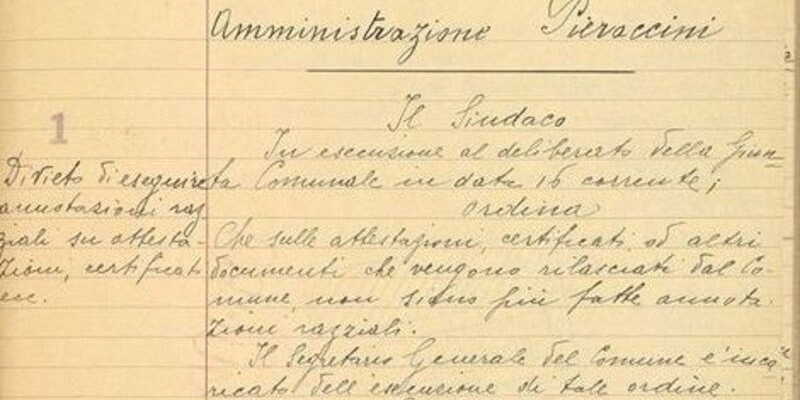 Amministrazione Pieraccini
1
Il Sindaco
In esecuzione al deliberato della Giun=
ta Comunale in data 16 corrente;
Ordina
Che sulle attestazioni, certificati od altri
documenti che vengono rilasciati dal Co-
mune, non siano più fatte annota-
zioni razziali.
Il Segretario Generale del Comune è inca=
ricato dell'esecuzione di tale ordine.
Divieto di eseguire
annotazioni raz
ziali su attesta-
zioni, certificati
ecc.